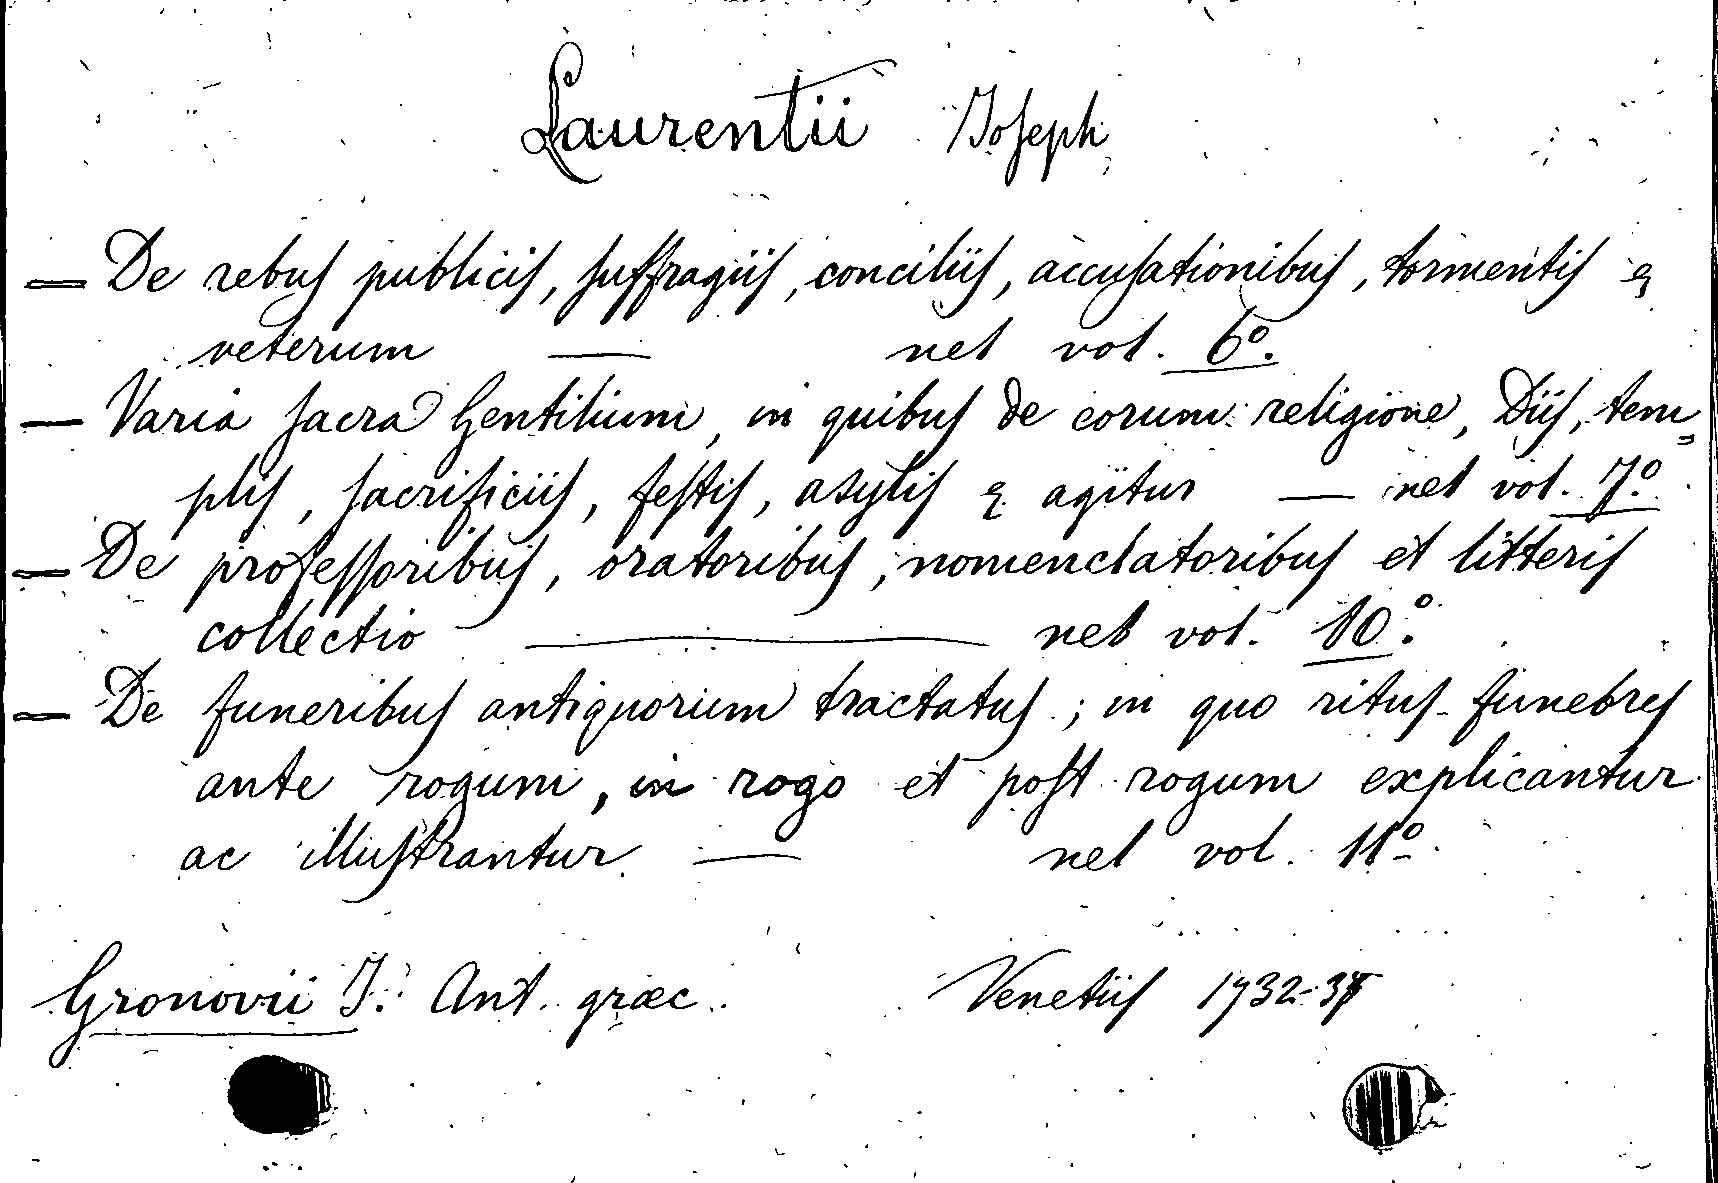 Laurentii Joseph
— De rebus publicis, suffragiis, conciliis, accusationibus, tormentis &
veterum — nel vol. 6º.
— Varia sacra Gentilium, in quibus de eorum religione, Diis, tem=
plis, sacrificiis, festis, asylis & agitur — nel vol. 7º.
— De professoribus, oratoribus, nomenclatoribus et litteris
collectio — nel vol. 10º.
— De funeribus antiquorum tractatus; in quo ritus funebres
ante rogum, in rogo et post rogum explicantur
ac illustrantur — nel vol. 11º.
Gronovii J. Ant. græc. Venetiis 1732-37